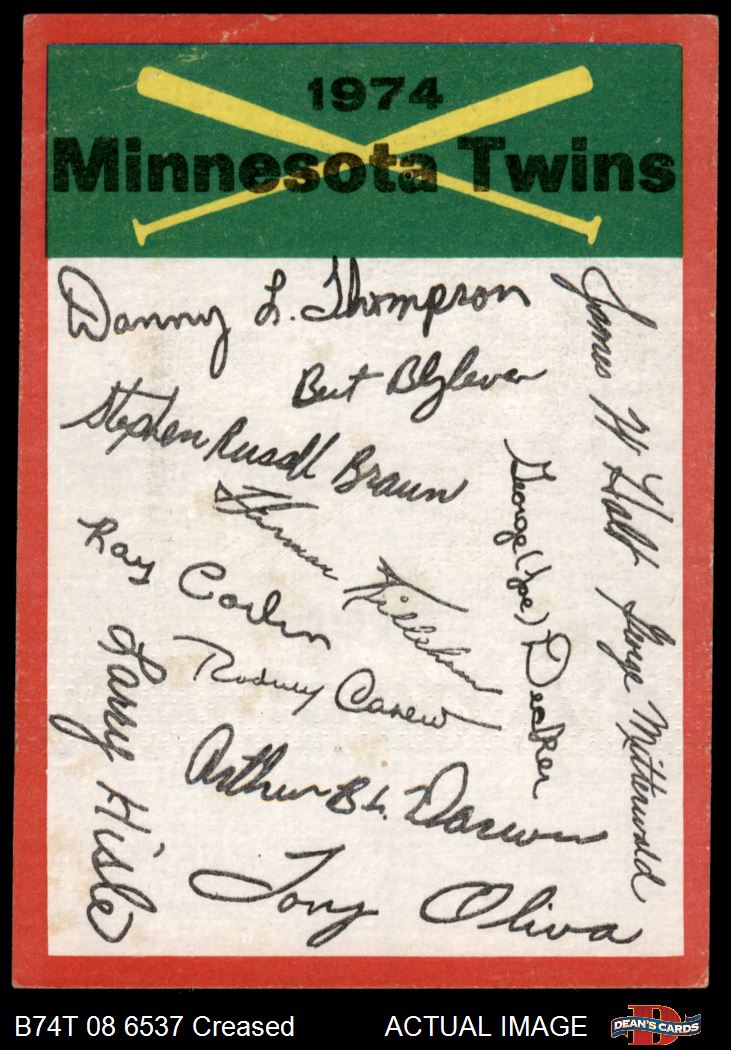 1974
Minnesota Twins
Danny L. Thompson
James W Holt
Bert Blyleven
Stephen Russell Braun
George (Joe) Decker
Harmon Killebrew
Ray Corbin
George Mitterwald
Rodney Carew
Larry Hisle
Arthur B L. Darwin
Tony Oliva
B74T 08 6537 Creased
ACTUAL IMAGE
DEAN'S CARDS